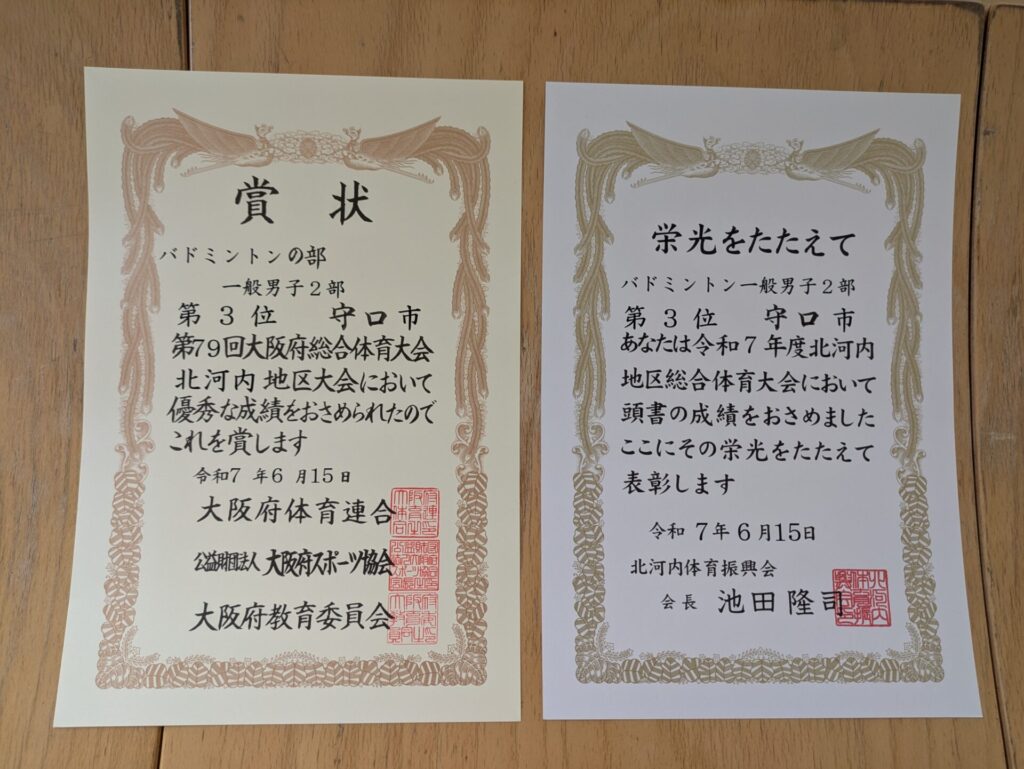 賞状
バドミントンの部
一般男子2部
第3位 守口市
第79回大阪府総合体育大会
北河内地区大会において
優秀な成績をおさめられたので
これを賞します
令和7年6月15日
大阪府体育連合
公益財団法人 大阪府スポーツ協会
大阪府教育委員会
栄光をたたえて
バドミントン一般男子2部
第3位 守口市
あなたは令和7年度北河内
地区総合体育大会において
頭書の成績をおさめました
ここにその栄光をたたえて
表彰します
令和7年6月15日
北河内体育振興会
会長 池田隆司